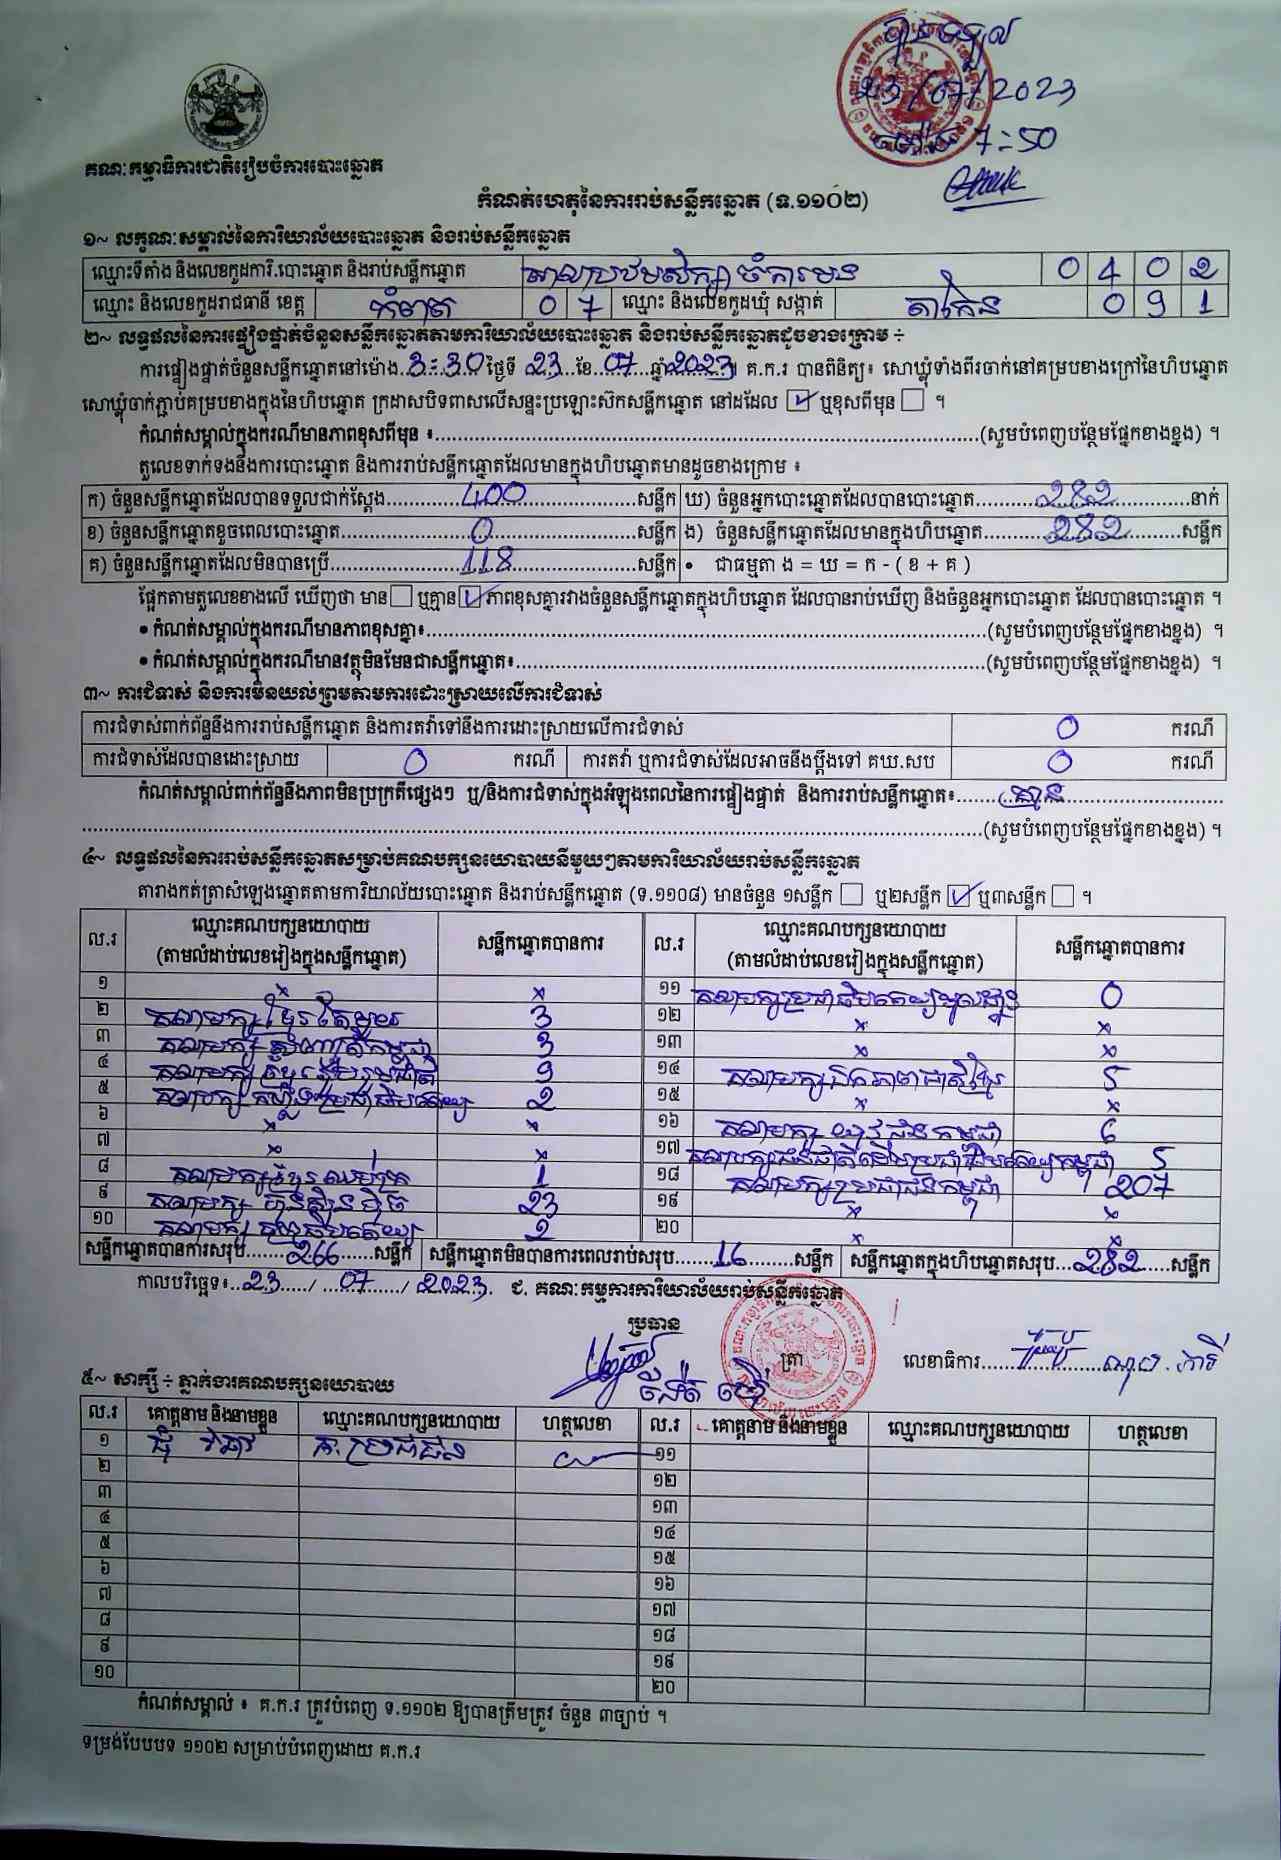 បានទទួល
23/07/2023
ម៉ោង 7:50
គណៈកម្មាធិការជាតិរៀបចំការបោះឆ្នោត
កំណត់ហេតុនៃការរាប់សន្លឹកឆ្នោត (ទ.១១០២)
១~ លក្ខណៈសម្គាល់នៃការិយាល័យបោះឆ្នោត និងរាប់សន្លឹកឆ្នោត
ឈ្មោះទីតាំង និងលេខកូដការិ.បោះឆ្នោត និងរាប់សន្លឹកឆ្នោត សាលាបឋមសិក្សា ចំការមន 0 4 0 2
ឈ្មោះ និងលេខកូដរាជធានី ខេត្ត កំពត 0 7 ឈ្មោះ និងលេខកូដឃុំ សង្កាត់ តាកែន 0 9 1
២~ លទ្ធផលនៃការផ្ទៀងផ្ទាត់ចំនួនសន្លឹកឆ្នោតតាមការិយាល័យបោះឆ្នោត និងរាប់សន្លឹកឆ្នោតដូចខាងក្រោម ÷
ការផ្ទៀងផ្ទាត់ចំនួនសន្លឹកឆ្នោតនៅម៉ោង..3:30 ថ្ងៃទី 23 ខែ 07 ឆ្នាំ 2023 ។ គ.ក.រ បានពិនិត្យ៖ សោឃ្លុំទាំងពីរចាក់នៅគម្របខាងក្រៅនៃហិបឆ្នោត
សោឃ្លុំចាក់ភ្ជាប់គម្របខាងក្នុងនៃហិបឆ្នោត ក្រដាសបិទពាសលើសន្ទះប្រឡោះស៊កសន្លឹកឆ្នោត នៅដដែល ✓ ឬខុសពីមុន ☐ ។
កំណត់សម្គាល់ក្នុងករណីមានភាពខុសពីមុន ៖..........(សូមបំពេញបន្ថែមផ្នែកខាងខ្នង) ។
តួលេខទាក់ទងនឹងការបោះឆ្នោត និងការរាប់សន្លឹកឆ្នោតដែលមានក្នុងហិបឆ្នោតមានដូចខាងក្រោម ៖
ក) ចំនួនសន្លឹកឆ្នោតដែលបានទទួលជាក់ស្តែង 400 សន្លឹក ឃ) ចំនួនអ្នកបោះឆ្នោតដែលបានបោះឆ្នោត 282 នាក់
ខ) ចំនួនសន្លឹកឆ្នោតខូចពេលបោះឆ្នោត 0 សន្លឹក ង) ចំនួនសន្លឹកឆ្នោតដែលមានក្នុងហិបឆ្នោត 282 សន្លឹក
គ) ចំនួនសន្លឹកឆ្នោតដែលមិនបានប្រើ 118 សន្លឹក • ជាធម្មតា ង = ឃ = ក - ( ខ + គ )
ផ្អែកតាមតួលេខខាងលើ ឃើញថា មាន ☐ ឬគ្មាន ✓ ភាពខុសគ្នារវាងចំនួនសន្លឹកឆ្នោតក្នុងហិបឆ្នោត ដែលបានរាប់ឃើញ និងចំនួនអ្នកបោះឆ្នោត ដែលបានបោះឆ្នោត ។
• កំណត់សម្គាល់ក្នុងករណីមានភាពខុសគ្នា៖..........(សូមបំពេញបន្ថែមផ្នែកខាងខ្នង) ។
• កំណត់សម្គាល់ក្នុងករណីមានវត្ថុមិនមែនជាសន្លឹកឆ្នោត៖..........(សូមបំពេញបន្ថែមផ្នែកខាងខ្នង) ។
៣~ ការជំទាស់ និងការមិនយល់ព្រមតាមការដោះស្រាយលើការជំទាស់
ការជំទាស់ពាក់ព័ន្ធនឹងការរាប់សន្លឹកឆ្នោត និងការតវ៉ាទៅនឹងការដោះស្រាយលើការជំទាស់ 0 ករណី
ការជំទាស់ដែលបានដោះស្រាយ 0 ករណី ការតវ៉ា ឬការជំទាស់ដែលអាចនឹងប្តឹងទៅ គឃ.សប 0 ករណី
កំណត់សម្គាល់ពាក់ព័ន្ធនឹងភាពមិនប្រក្រតីផ្សេងៗ ឬ/និងការជំទាស់ក្នុងអំឡុងពេលនៃការផ្ទៀងផ្ទាត់ និងការរាប់សន្លឹកឆ្នោត៖ គ្មាន
..........(សូមបំពេញបន្ថែមផ្នែកខាងខ្នង) ។
៤~ លទ្ធផលនៃការរាប់សន្លឹកឆ្នោតសម្រាប់គណបក្សនយោបាយនីមួយៗតាមការិយាល័យរាប់សន្លឹកឆ្នោត
តារាងកត់ត្រាសំឡេងឆ្នោតតាមការិយាល័យបោះឆ្នោត និងរាប់សន្លឹកឆ្នោត (ទ.១១០៨) មានចំនួន ១សន្លឹក ☐ ឬ២សន្លឹក ✓ ឬ៣សន្លឹក ☐ ។
ល.រ ឈ្មោះគណបក្សនយោបាយ (តាមលំដាប់លេខរៀងក្នុងសន្លឹកឆ្នោត) សន្លឹកឆ្នោតបានការ ល.រ ឈ្មោះគណបក្សនយោបាយ (តាមលំដាប់លេខរៀងក្នុងសន្លឹកឆ្នោត) សន្លឹកឆ្នោតបានការ
១ × × ១១ គណបក្សប្រជាធិបតេយ្យមូលដ្ឋាន 0
២ គណបក្ស ខ្មែរតែមួយ 3 ១២ × ×
៣ គណបក្ស 3 ១៣ × ×
៤ គណបក្ស 9 ១៤ គណបក្ស ឯកភាពជាតិខ្មែរ 5
៥ គណបក្ស 2 ១៥ × ×
៦ × × ១៦ គណបក្ស យុវជនកម្ពុជា 6
៧ × × ១៧ គណបក្សជនជាតិដើមប្រជាធិបតេយ្យកម្ពុជា 5
៨ គណបក្ស ខ្មែរឈប់ក្រ 1 ១៨ គណបក្សប្រជាជនកម្ពុជា 207
៩ គណបក្ស ហ៊្វុនស៊ិនប៉ិច 23 ១៩ × ×
១០ គណបក្ស 2 ២០ × ×
សន្លឹកឆ្នោតបានការសរុប 266 សន្លឹក សន្លឹកឆ្នោតមិនបានការពេលរាប់សរុប 16 សន្លឹក សន្លឹកឆ្នោតក្នុងហិបឆ្នោតសរុប 282 សន្លឹក
កាលបរិច្ឆេទ៖ 23 / 07 / 2023. ជ. គណៈកម្មការការិយាល័យរាប់សន្លឹកឆ្នោត
ប្រធាន
ត្រា
លេខាធិការ
៥~ សាក្សី ÷ ភ្នាក់ងារគណបក្សនយោបាយ
ល.រ គោត្តនាម និងនាមខ្លួន ឈ្មោះគណបក្សនយោបាយ ហត្ថលេខា ល.រ គោត្តនាម និងនាមខ្លួន ឈ្មោះគណបក្សនយោបាយ ហត្ថលេខា
១ គ. ប្រជាជន ១១
២ ១២
៣ ១៣
៤ ១៤
៥ ១៥
៦ ១៦
៧ ១៧
៨ ១៨
៩ ១៩
១០ ២០
កំណត់សម្គាល់ ៖ គ.ក.រ ត្រូវបំពេញ ទ.១១០២ ឱ្យបានត្រឹមត្រូវ ចំនួន ៣ច្បាប់ ។
ទម្រង់បែបបទ ១១០២ សម្រាប់បំពេញដោយ គ.ក.រ